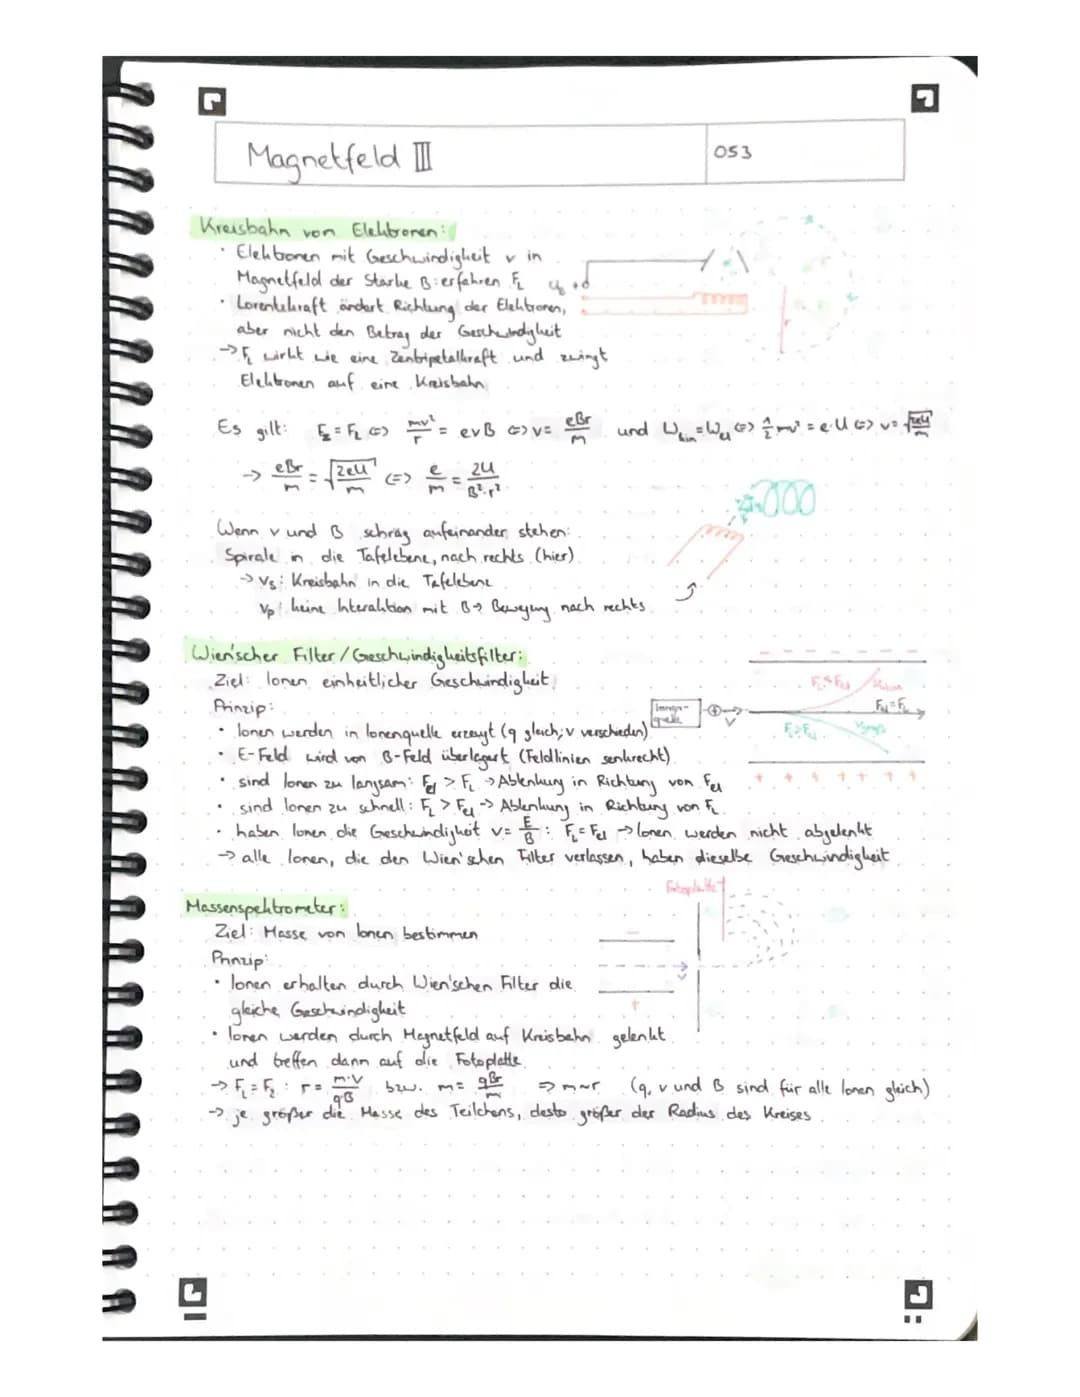 Magnetfeld III
053
Kreisbahn von Elektronen:
· Elektronen mit Geschwindigkeit v in
Magnetfeld der Stärke B erfahren F_L
· Lorentzkraft ändert Richtung der Elektronen,
aber nicht den Betrag der Geschwindigkeit
→ F_L wirkt wie eine Zentripetalkraft und zwingt
Elektronen auf eine Kreisbahn
r
Es gilt: F_z = F_L <=> mv²/r = evB <=> v = eBr/m und W_kin = W_el <=> 1/2 mv² = e·U <=> v = √(2eU/m)
→ eBr/m = √(2eU/m) <=> e/m = 2U/(B²·r²)
Wenn v und B schräg aufeinander stehen:
Spirale in die Tafelebene, nach rechts (hier)
→ v_s: Kreisbahn in die Tafelebene
v_p: keine Interaktion mit B → Bewegung nach rechts
Wien'scher Filter / Geschwindigkeitsfilter:
Ziel: Ionen einheitlicher Geschwindigkeit
Prinzip:
· Ionen werden in Ionenquelle erzeugt (q gleich; v verschieden)
· E-Feld wird von B-Feld überlagert (Feldlinien senkrecht)
· sind Ionen zu langsam: F_el > F_L → Ablenkung in Richtung von F_el
· sind Ionen zu schnell: F_L > F_el → Ablenkung in Richtung von F_L
· haben Ionen die Geschwindigkeit v = E/B : F_L = F_el → Ionen werden nicht abgelenkt
→ alle Ionen, die den Wien'schen Filter verlassen, haben dieselbe Geschwindigkeit
Ionen-
quelle
+
v
F_el = F_L
F_L > F_el
- - - - - - -
+ + + + + + +
Massenspektrometer:
Ziel: Masse von Ionen bestimmen
Prinzip:
· Ionen erhalten durch Wien'schen Filter die
gleiche Geschwindigkeit
· Ionen werden durch Magnetfeld auf Kreisbahn gelenkt
und treffen dann auf die Fotoplatte
→ F_L = F_z : r = m·v/qB bzw. m = qBr/m => m~r (q, v und B sind für alle Ionen gleich)
→ je größer die Masse des Teilchens, desto größer der Radius des Kreises
Fotoplatte
-
+